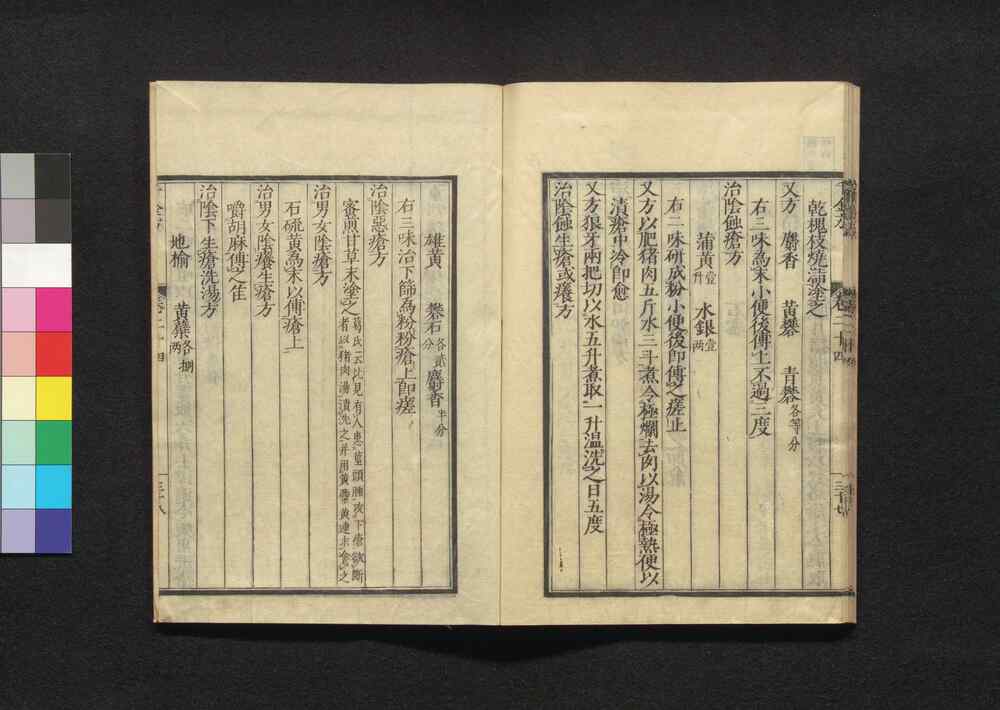 乾槐枝燒涾塗之
又方 麝香 黄礬 青礬各等分
右三味為末小便後傅上不過三度
治陰蝕瘡方
蒲黄壹升 水銀壹两
右二味研成粉小便後即傅之瘥止
又方以肥豬肉五斤水三斗煮令極爛去肉以湯令極熱便以
漬瘡中冷即愈
又方狼牙兩把切以水五升煮取一升温洗之日五度
治陰蝕生瘡或癢方
雄黄 礬石各貳分 麝香半分
右三味治下篩為粉粉瘡上即瘥
治陰惡瘡方
蜜煎甘草末塗之葛氏云比見有人患莖頭腫攻下瘡欲斷
者以猪肉湯漬洗之并用黄蘗黄連末傅之
治男女陰瘡方
石硫黄為末以傅瘡上
治男女陰癢生瘡方
嚼胡麻傅之佳
治陰下生瘡洗湯方
地榆 黄蘗各捌两